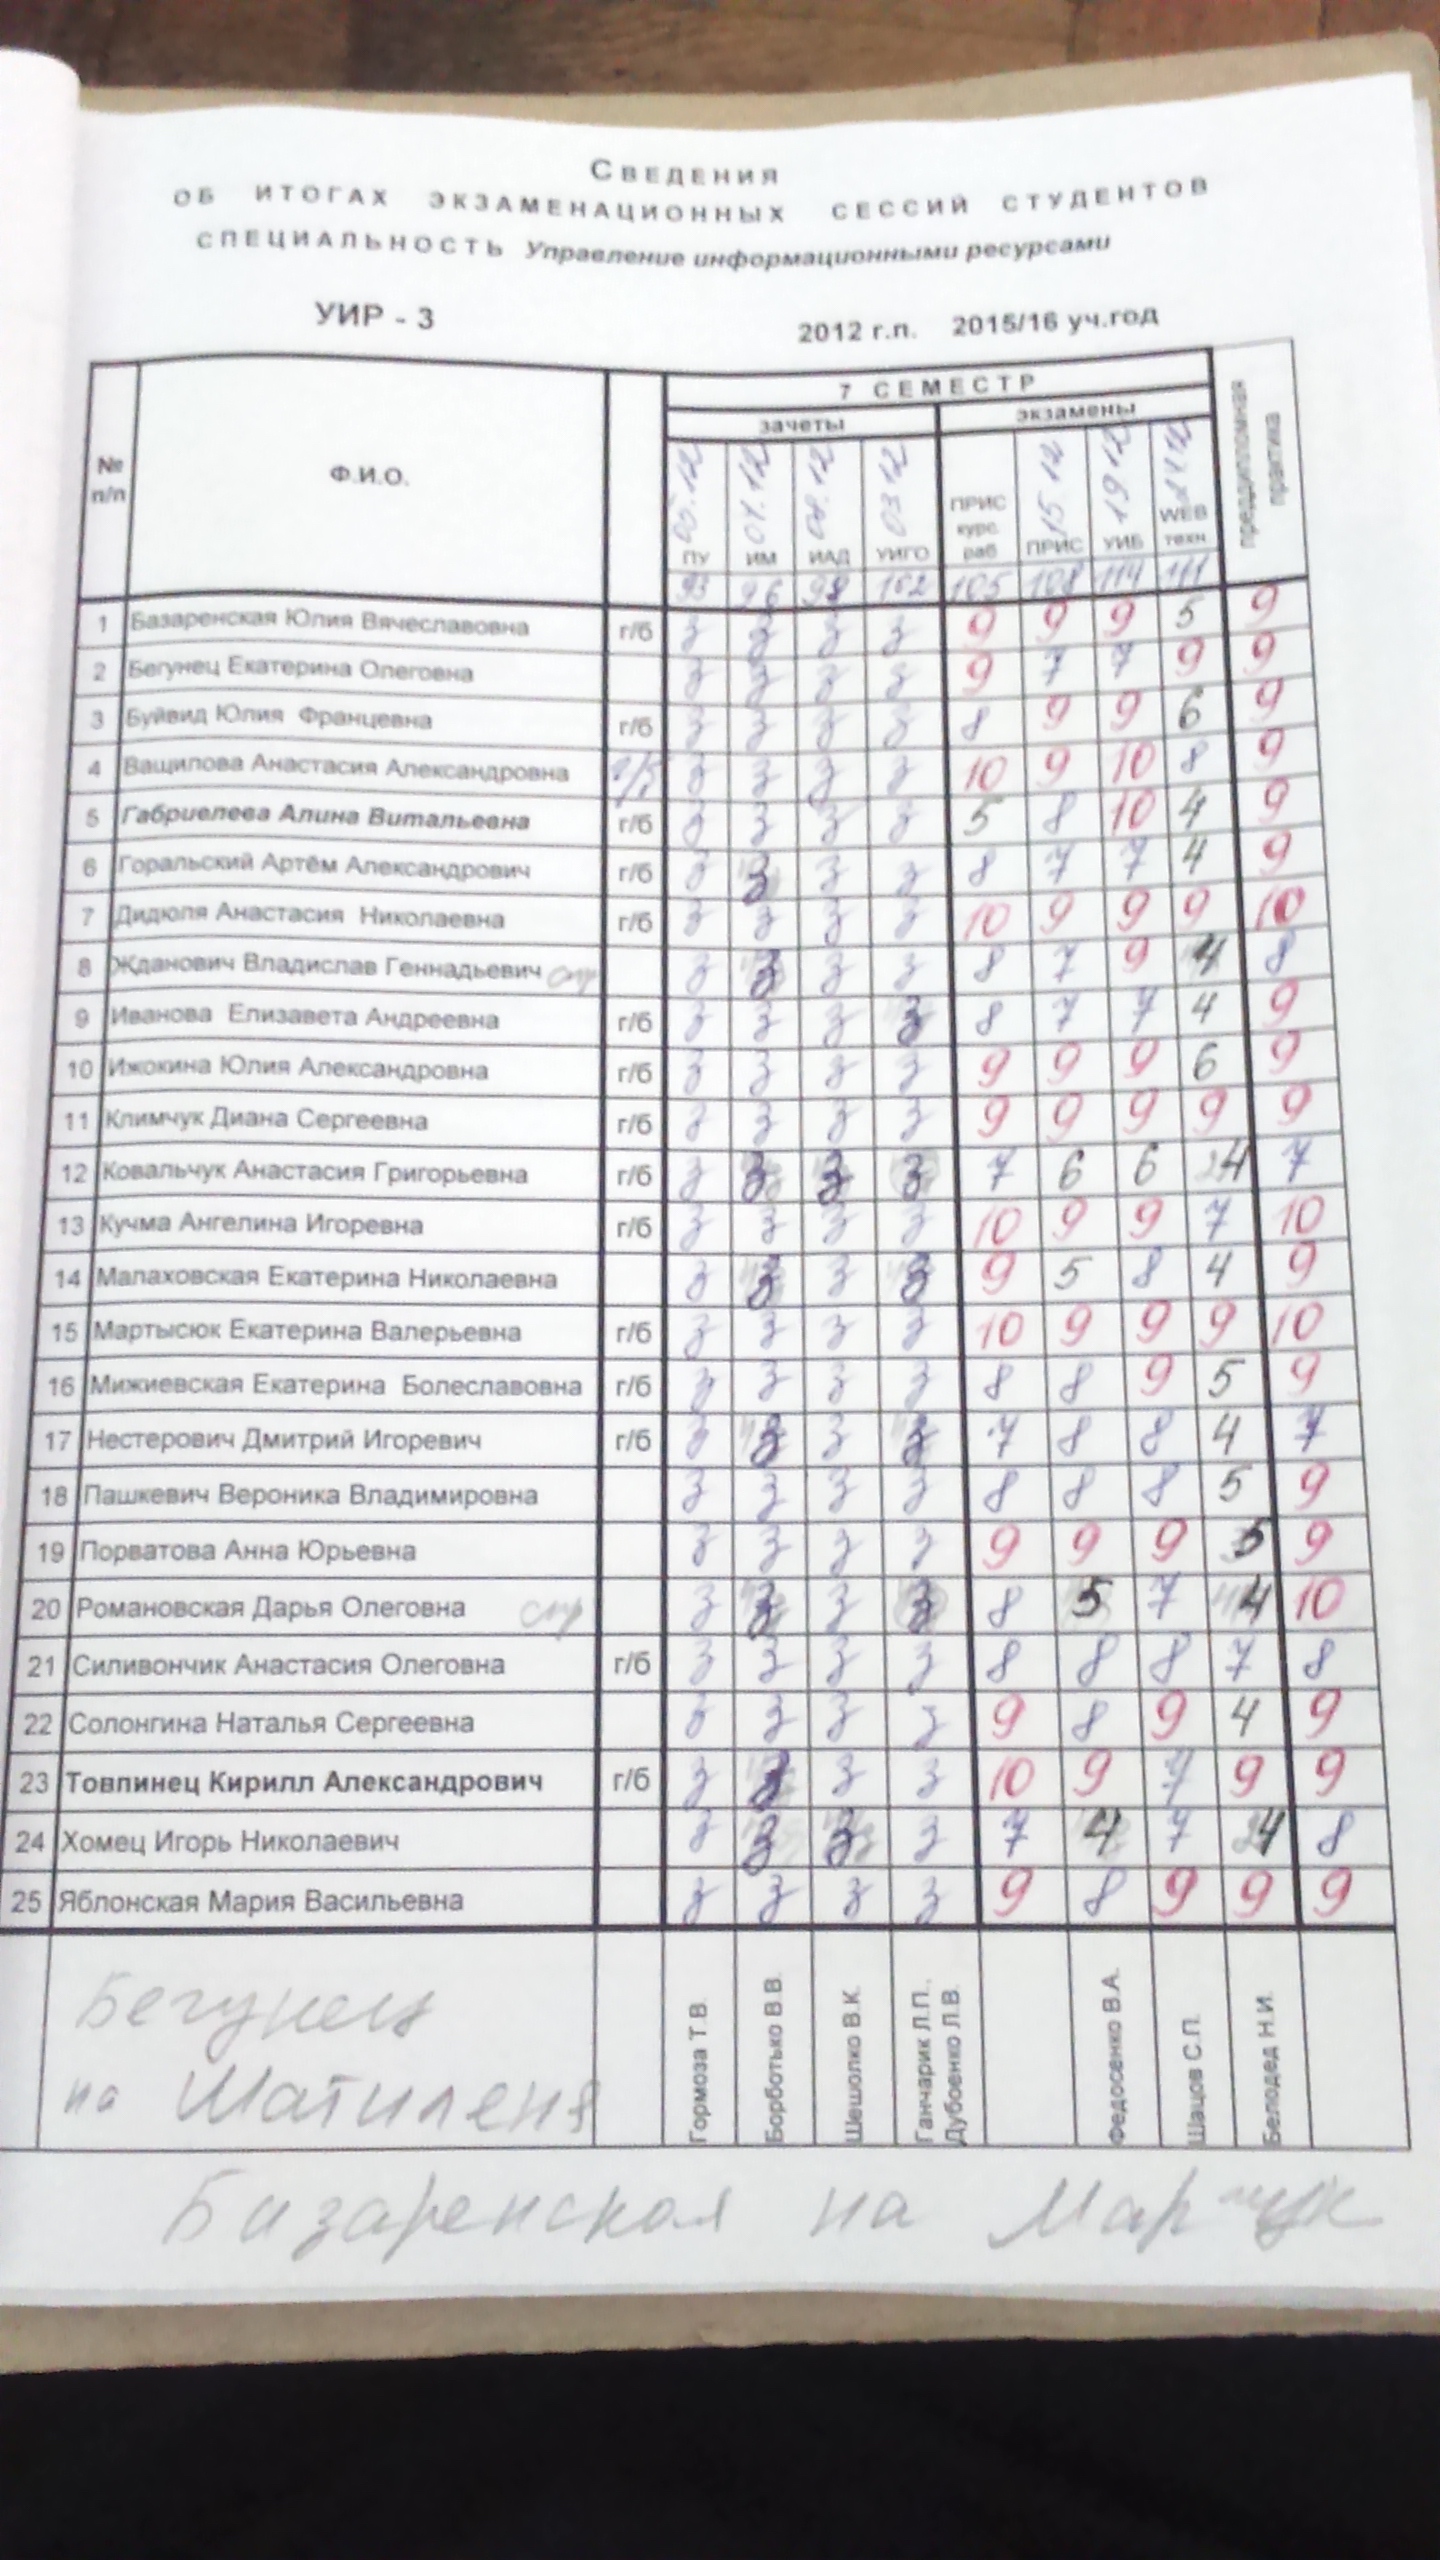 Сведения
об итогах экзаменационных сессий студентов
специальность Управление информационными ресурсами
УИР - 3 2012 г.п. 2015/16 уч.год
7 СЕМЕСТР
зачеты экзамены преддипломная практика
№ п/п Ф.И.О. 05.12 04.12 08.12 03.12 15.12 19.12
ПУ ИМ ИАД УИГО ПРИС курс. раб ПРИС УИБ WEB техн
93 96 98 102 105 108 114 111
1 Базаренская Юлия Вячеславовна г/б з з з з 9 9 9 5 9
2 Бегунец Екатерина Олеговна з з з з 9 7 7 9 9
3 Буйвид Юлия Францевна г/б з з з з 8 9 9 6 9
4 Ващилова Анастасия Александровна г/б з з з з 10 9 10 8 9
5 Габриелева Алина Витальевна г/б з з з з 5 8 10 4 9
6 Горальский Артём Александрович г/б з з з з 8 7 7 4 9
7 Дидюля Анастасия Николаевна г/б з з з з 10 9 9 9 10
8 Жданович Владислав Геннадьевич з з з з 8 7 9 4 8
9 Иванова Елизавета Андреевна г/б з з з з 8 7 7 4 9
10 Ижокина Юлия Александровна г/б з з з з 9 9 9 6 9
11 Климчук Диана Сергеевна г/б з з з з 9 9 9 9 9
12 Ковальчук Анастасия Григорьевна г/б з з з з 7 6 6 4 7
13 Кучма Ангелина Игоревна г/б з з з з 10 9 9 7 10
14 Малаховская Екатерина Николаевна з з з з 9 5 8 4 9
15 Мартысюк Екатерина Валерьевна г/б з з з з 10 9 9 9 10
16 Мижиевская Екатерина Болеславовна г/б з з з з 8 8 9 5 9
17 Нестерович Дмитрий Игоревич г/б з з з з 7 8 8 4 7
18 Пашкевич Вероника Владимировна з з з з 8 8 8 5 9
19 Порватова Анна Юрьевна з з з з 9 9 9 5 9
20 Романовская Дарья Олеговна з з з з 8 5 7 4 10
21 Силивончик Анастасия Олеговна г/б з з з з 8 8 8 7 8
22 Солонгина Наталья Сергеевна з з з з 9 8 9 4 9
23 Товпинец Кирилл Александрович г/б з з з з 10 9 7 9 9
24 Хомец Игорь Николаевич з з з з 7 4 7 4 8
25 Яблонская Мария Васильевна з з з з 9 8 9 9 9
Гормоза Т.В. Борботько В.В. Шешолко В.К. Ганчарик Л.П., Дубоенко Л.В. Федосенко В.А. Шацов С.П. Белодед Н.И.
Бегунец
на Шатиленя
Базаренская на Марчук